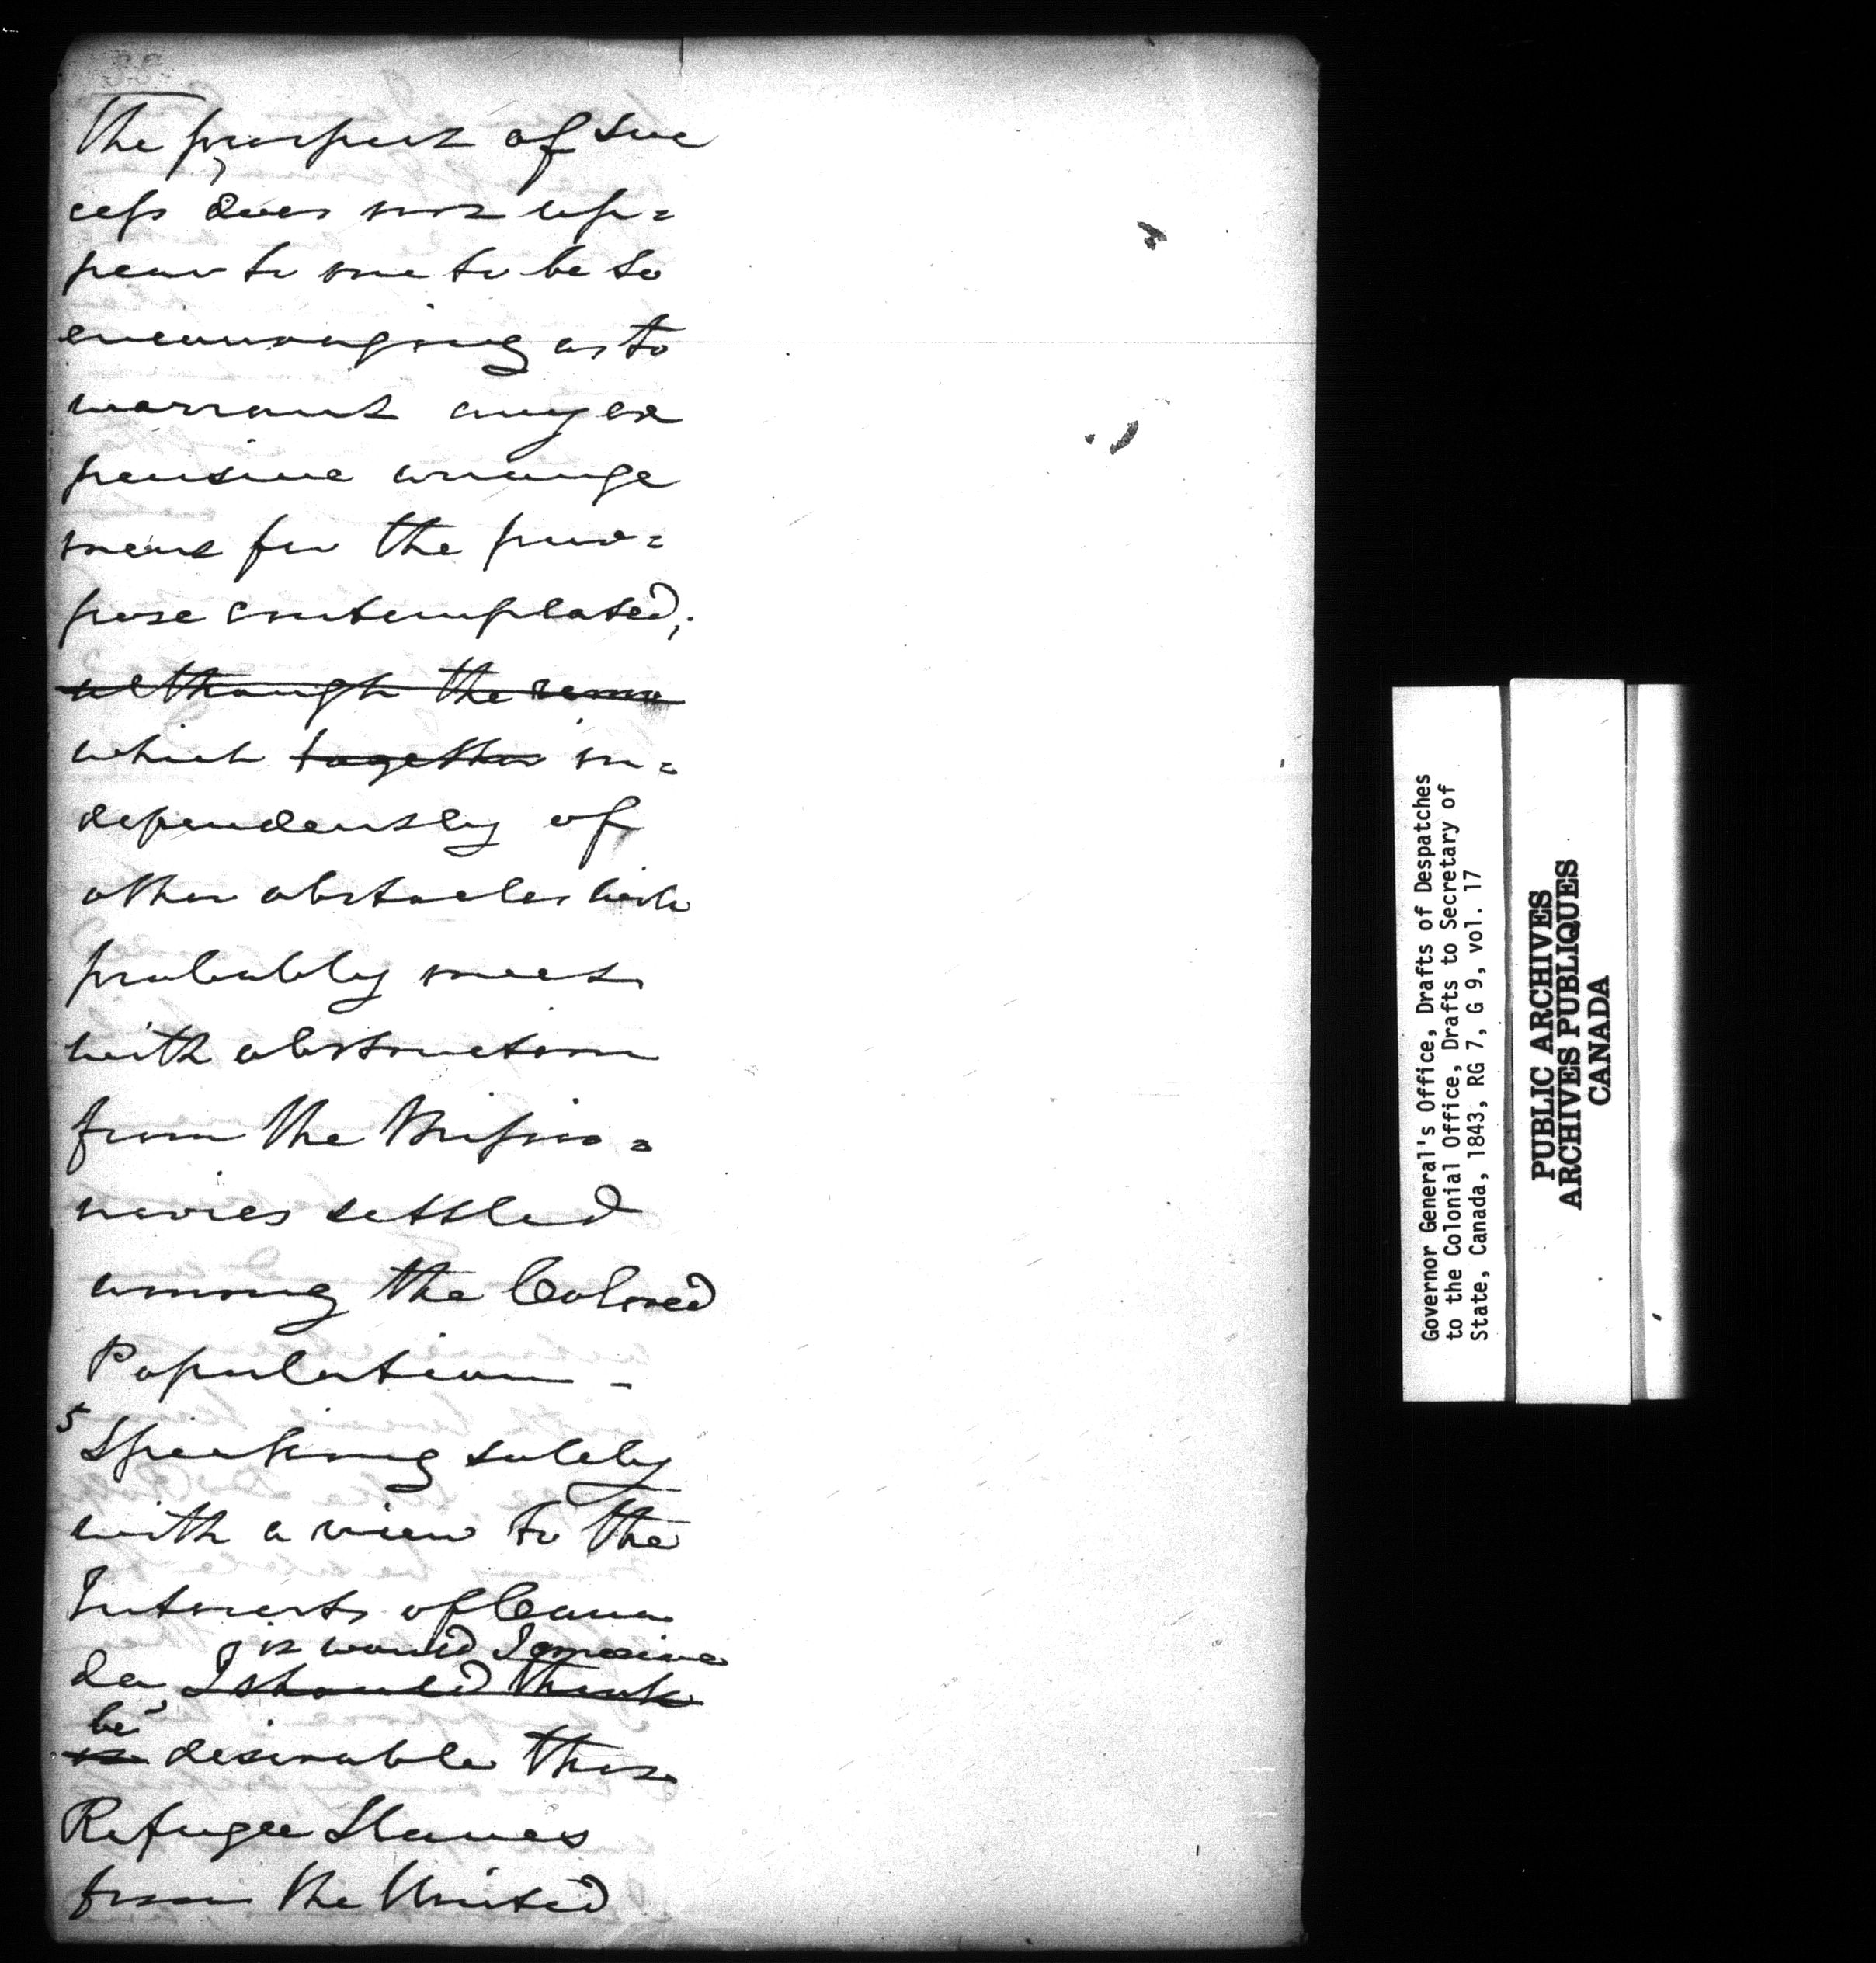 The prospect of suc
cess does not ap=
pear to me to be so
encouraging as to
warrant any ex
pensive arrange
ment for the pur=
pose contemplated;
although the remo
which together in=
dependently of
other obstacles will
probably meet
with obstruction
from the Missio=
naries settled
among the Colored
Population -
5 Speaking solely
with a view to the
Interests of Cana
it would I conceive
da I should think
be
is desirable that
Refugee Slaves
from the United
Governor General's Office, Drafts of Despatches
to the Colonial Office, Drafts to Secretary of
State, Canada, 1843, RG 7, G 9, vol. 17
PUBLIC ARCHIVES
ARCHIVES PUBLIQUES
CANADA